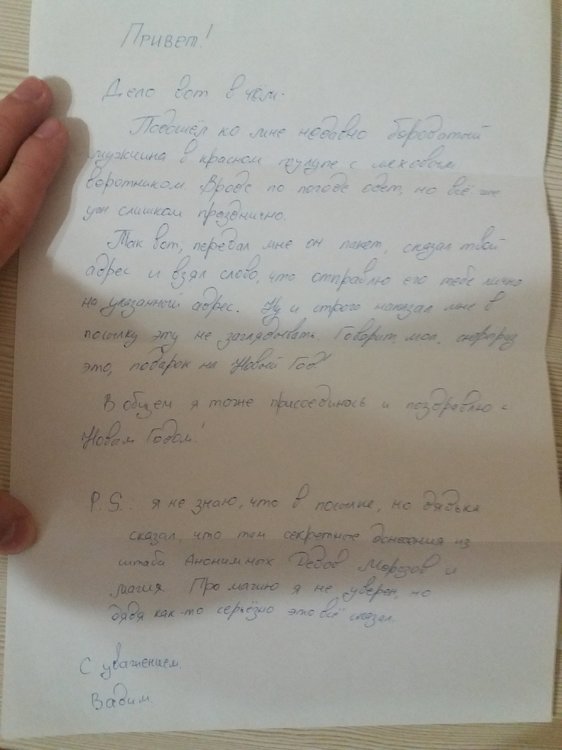 Привет!
Дело вот в чём.
Подошёл ко мне недавно бородатый
мужчина в красном тулупе с меховым
воротником. Вроде по погоде одет, но всё же
уж слишком празднично.
Так вот, передал мне он пакет, сказал твой
адрес и взял слово, что отправлю его тебе лично
на указанный адрес. Ну и строго наказал мне в
посылку эту не заглядывать. Говорит, мол, сюрприз
это, подарок на Новый Год.
В общем я тоже присоединюсь и поздравлю с
Новым Годом!
P.S.. Я не знаю, что в посылке, но дядька
сказал, что там секретные донесения из
штаба Анонимных Дедов Морозов и
магия. Про магию я не уверен, но
дядя как-то серьёзно это всё сказал.
С уважением,
Вадим.